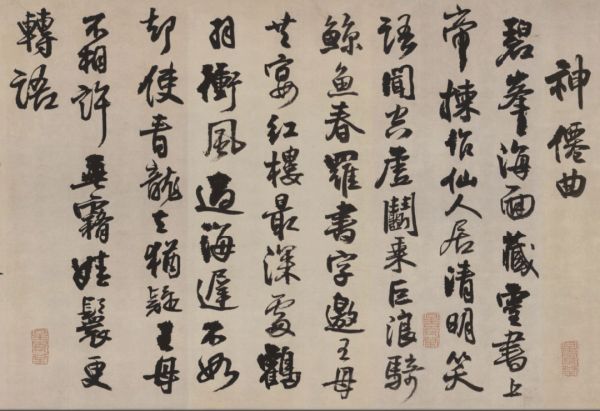 神僊曲
碧峯海面藏靈書上
帝揀作仙人居清明笑
語聞空虛鬭乘巨浪騎
鯨魚春羅書字邀王母
共宴紅樓最深處鶴
羽衝風過海遲不如
却使青龍去猶疑王母
不相許垂霧娃鬟更
轉語